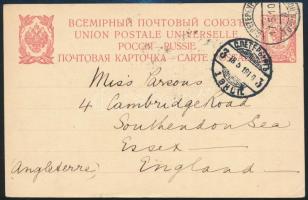 ВСЕМІРНЫЙ ПОЧТОВЫЙ СОЮЗЪ
UNION POSTALE UNIVERSELLE
РОССІЯ - RUSSIE
ПОЧТОВАЯ КАРТОЧКА - CARTE
Miss Parsons
4 Cambridge Road
Southend on Sea
Essex
(Angleterre) England